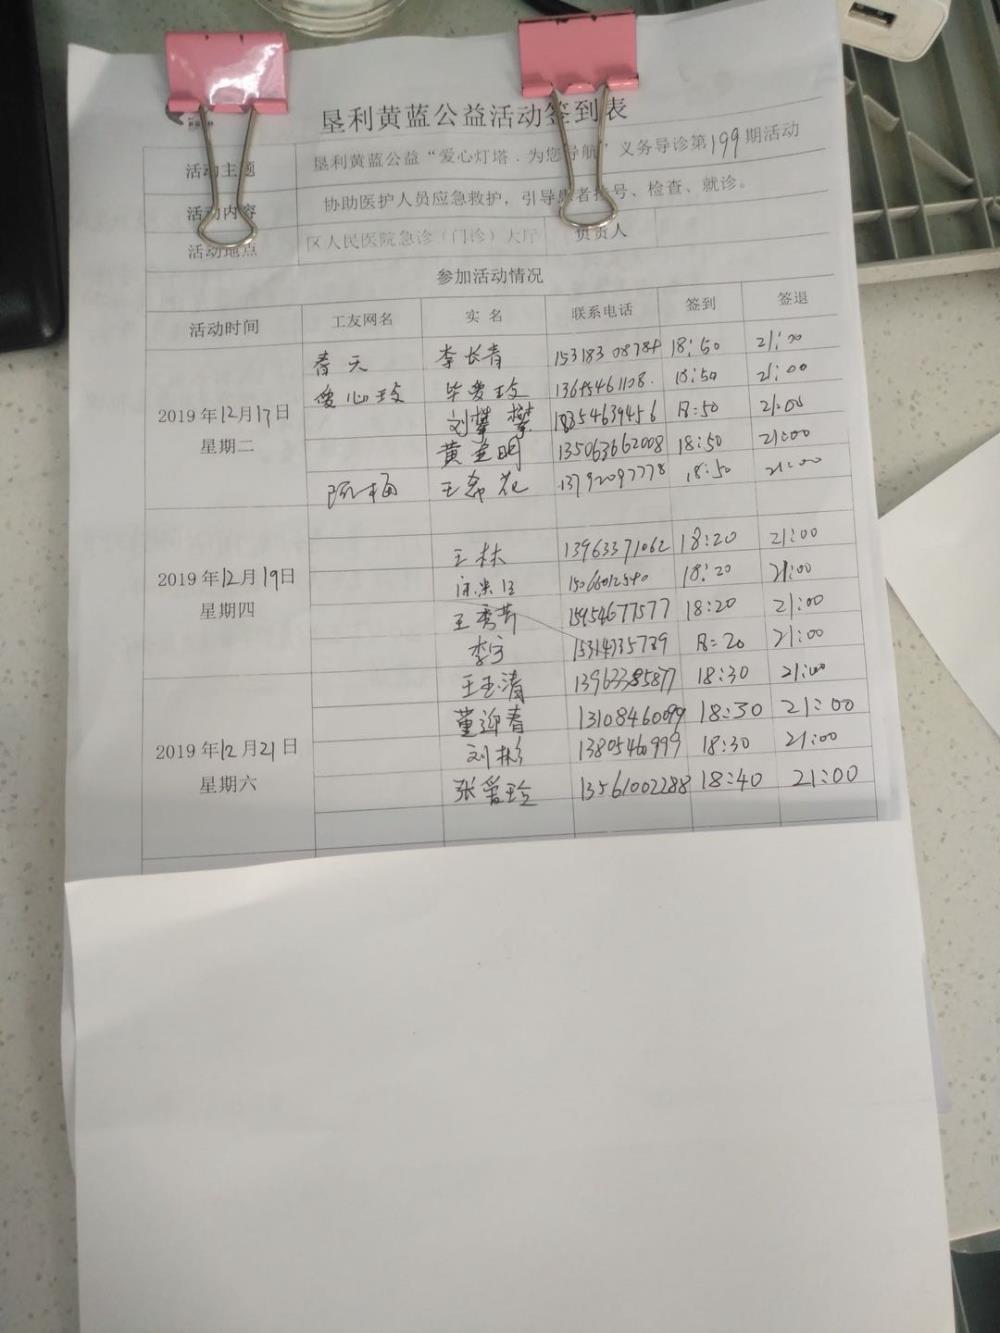 垦利黄蓝公益活动签到表
活动主题 垦利黄蓝公益“爱心灯塔.为您导航”义务导诊第199期活动
活动内容 协助医护人员应急救护，引导患者挂号、检查、就诊。
活动地点 区人民医院急诊（门诊）大厅 负责人
参加活动情况
活动时间 工友网名 实 名 联系电话 签到 签退
春天 李长青 15318308784 18:50 21:00
爱心玫 毕爱玫 13645461108. 18:50 21:00
2019年12月17日 刘攀攀 18354639456 18:50 21:00
星期二 黄 明 135063662008 18:50 21:00
梅 王 花 13792097778 18:50 21:00
王林 13963371062 18:20 21:00
2019年12月19日 18:20 21:00
星期四 王秀芹 15954677577 18:20 21:00
李宁 15314735739 18:20 21:00
王玉清 13963385877 18:30 21:00
董迎春 13108460099 18:30 21:00
2019年12月21日 刘彬 1380546999 18:30 21:00
星期六 张爱玲 13561002288 18:40 21:00